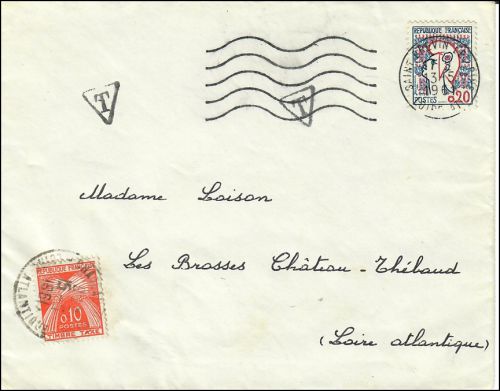 REPUBLIQUE FRANÇAISE
POSTES 0,20
T
T
Madame Loison
Les Brosses Château-Thébaud
(Loire atlantique)
REPUBLIQUE FRANÇAISE
0,10
POSTES
TIMBRE TAXE